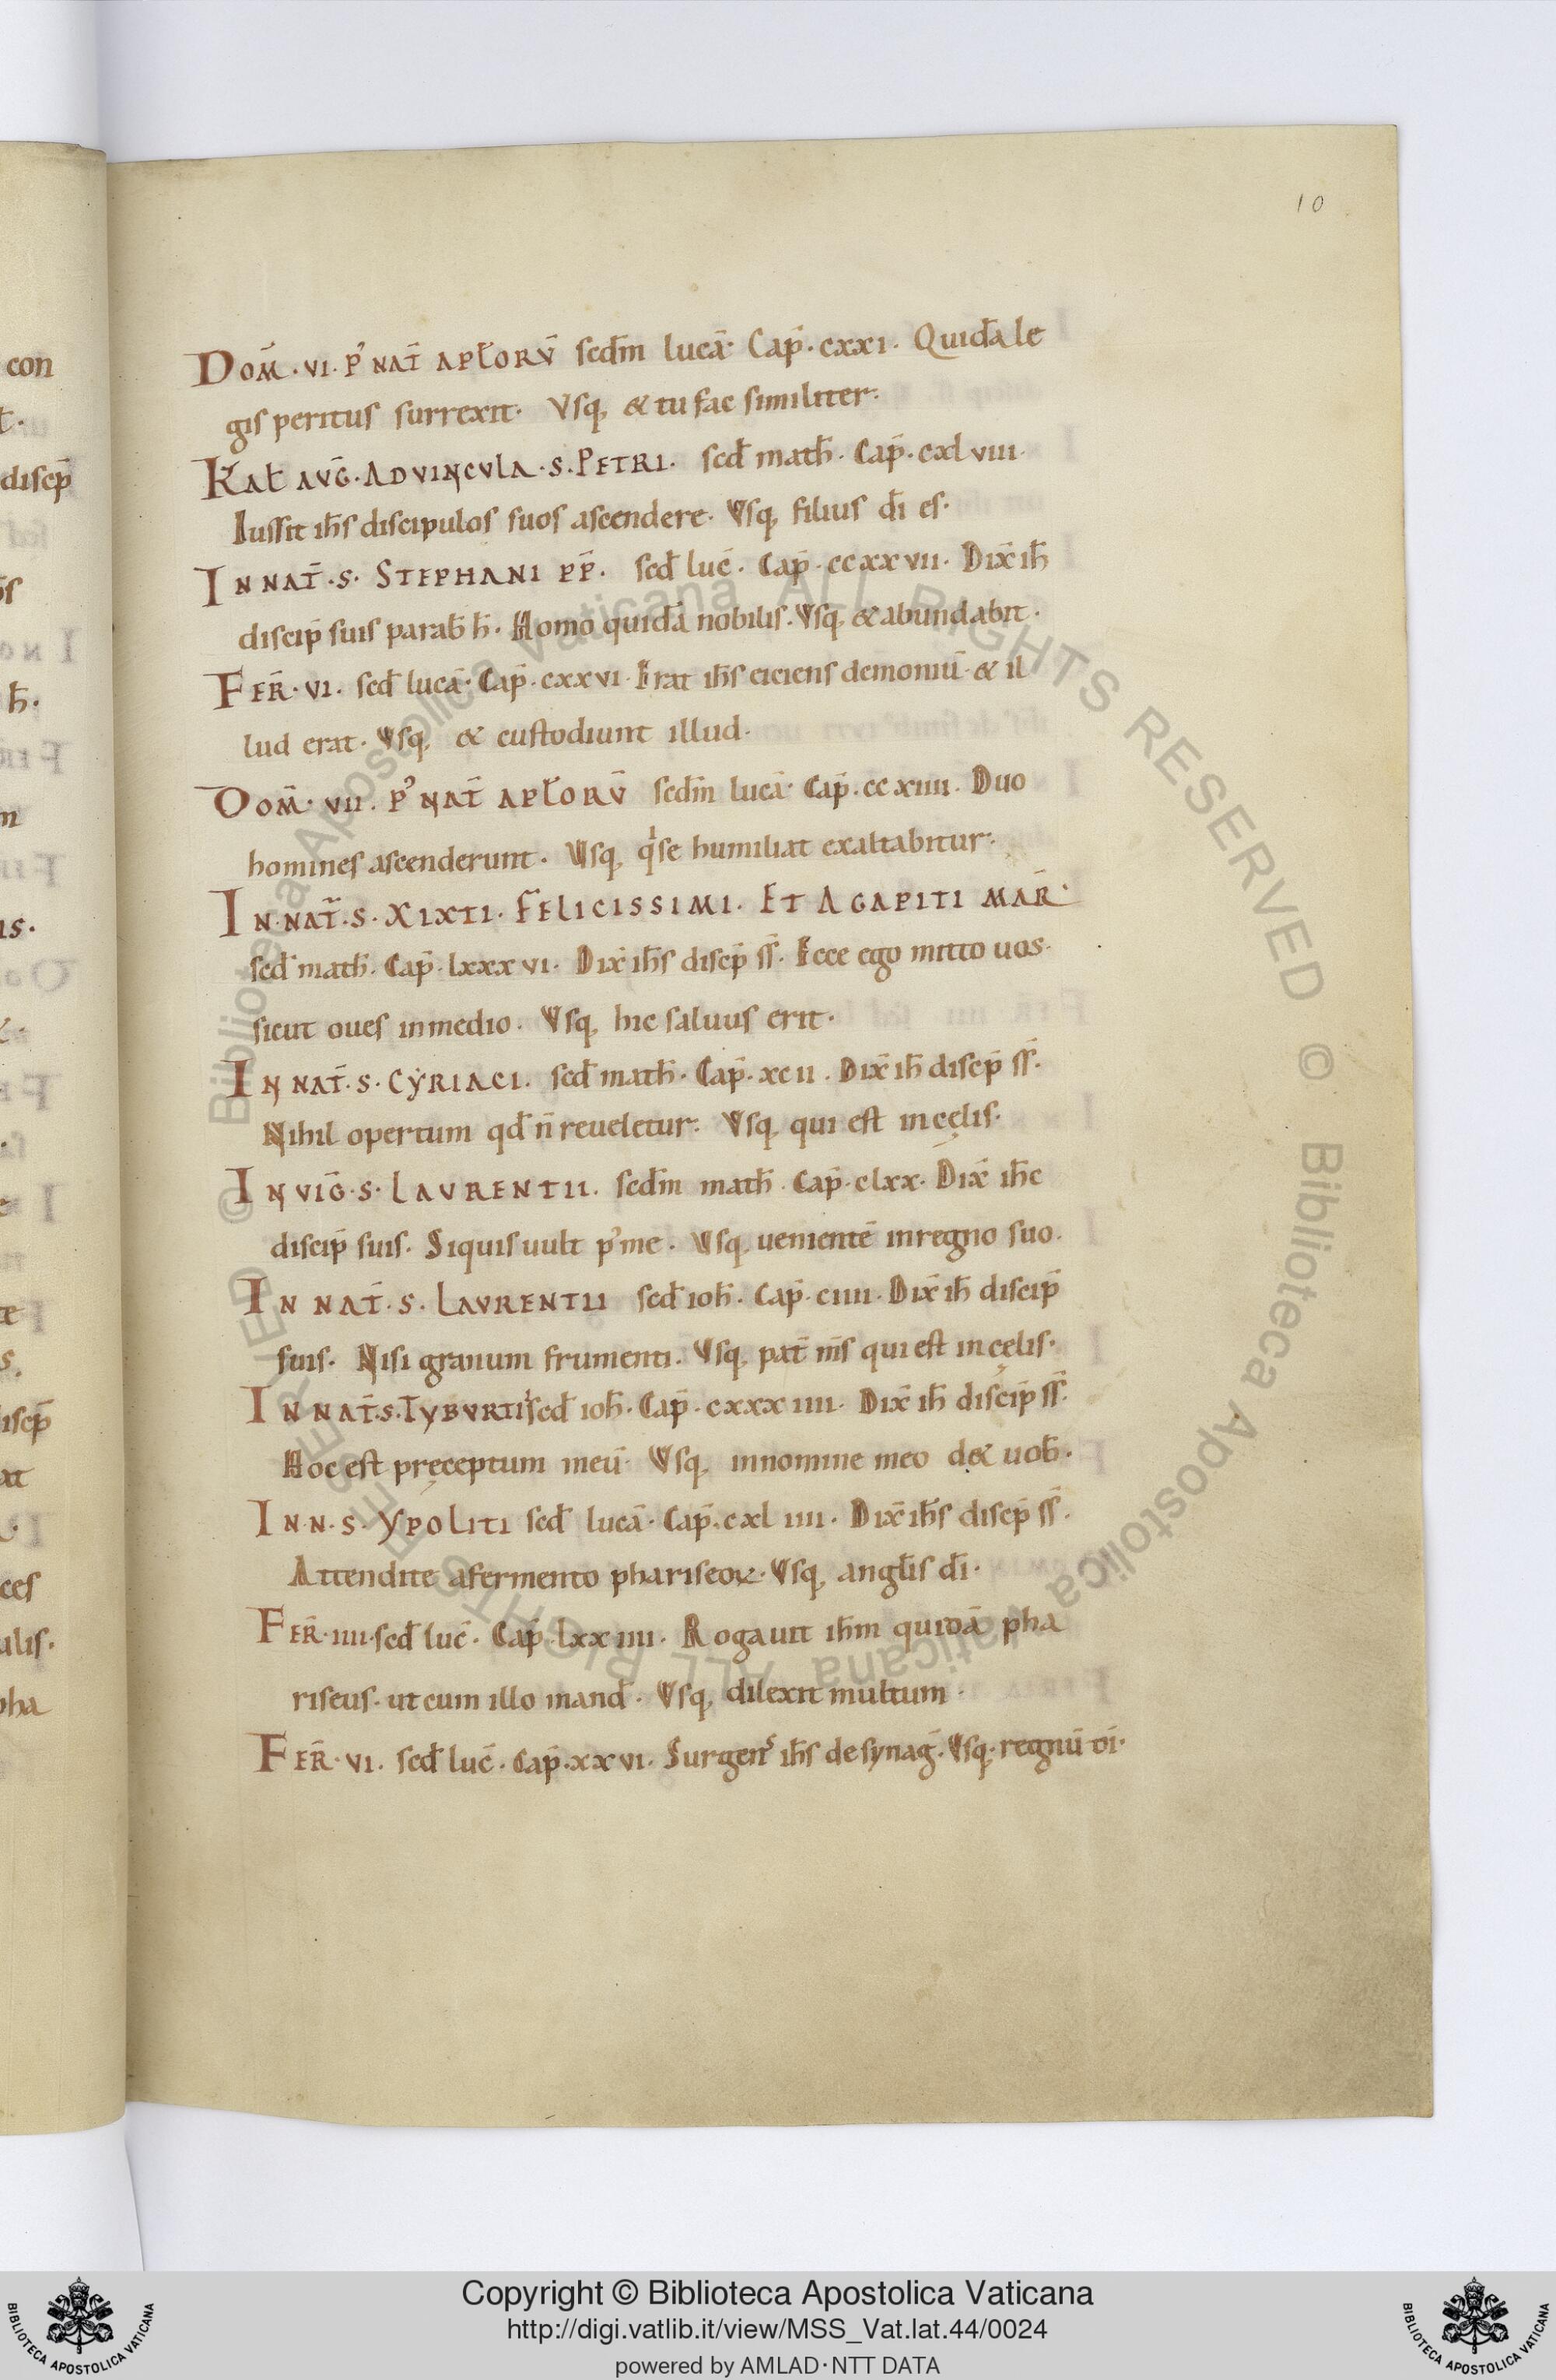 10
DOM̄ · VI · P᾿ NAT̄ APƚORV̄ scdm̄ lucā · Cap̄ · cxxi · Quidā le
gis peritus surrexit · Vsq; & tu fac similiter ·
Kaƚ AVḠ · AD VINCVLA · S · PETRI · scd̄ math̄ · Cap̄ · cxlviii ·
Iussit ih̄s discipulos suos ascendere · Vsq; filius dī es ·
IN NAT̄ · S · STEPHANI PP̄ · scd̄ luc̄ · Cap̄ · ccxxvii · Dix̄ ih̄
discip̄ suis parab̄ h̄ · Homo quidā nobilis · Vsq; & abundabit ·
FER̄ · VI · scd̄ lucā · Cap̄ · cxxvi · Erat ih̄s eiciens demoniū · & il
lud erat · Vsq; & custodiunt illud ·
DOM̄ · VII · P᾿ NAT̄ APƚORV̄ scdm̄ lucā · Cap̄ · ccxiiii · Duo
homines ascenderunt · Vsq; qͥ se humiliat exaltabitur ·
IN · NAT̄ · S · XIXTI · FELICISSIMI · ET AGAPITI MAR̄ ·
scd̄ math̄ · Cap̄ · lxxxvi · Dix̄ ih̄s discip̄ ss̄ · Ecce ego mitto uos ·
sicut oues in medio · Vsq; hic saluus erit ·
IN NAT̄ · S · CẎRIACI · scd̄ math̄ · Cap̄ · xcii · Dix̄ ih̄ discip̄ ss̄ ·
Nihil opertum qd̄ n̄ reueletur · Vsq; qui est in cęlis ·
IN VIḠ · S · LAVRENTII · scdm̄ math̄ · Cap̄ · clxx · Dix̄ ih̄c
discip̄ suis · Siquis uult p᾿ me · Vsq; uenientē in regno suo ·
IN NAT̄ · S · LAVRENTII scd̄ ioh̄ · Cap̄ · ciiii · Dix̄ ih̄ discip̄
suis · Nisi granum frumenti · Vsq; pat̄ m̄s qui est in cęlis ·
IN NAT̄ · S · TYBVRTII scd̄ ioh̄ · Cap̄ · cxxxiiii · Dix̄ ih̄ discip̄ ss̄ ·
Hoc est pręceptum meū · Vsq; in nomine meo det uob̄ ·
IN · N · S · YPOLITI scd̄ lucā · Cap̄ · cxliiii · Dix̄ ih̄s discip̄ ss̄ ·
Attendite a fermento phariseoꝝ · Vsq; angƚis dī ·
FER̄ · IIII · scd̄ luc̄ · Cap̄ · lxxiiii · Rogauit ih̄m quidā pha
riseus · ut cum illo mand̄ · Vsq; dilexit multum ·
FER̄ · VI · scd̄ luc̄ · Cap̄ · xxvi · Surgens ih̄s de synaḡ · Vsq; regnū dī ·
Copyright © Biblioteca Apostolica Vaticana
http://digi.vatlib.it/view/MSS_Vat.lat.44/0024
powered by AMLAD·NTT DATA
BIBLIOTECA APOSTOLICA VATICANA
BIBLIOTECA APOSTOLICA VATICANA